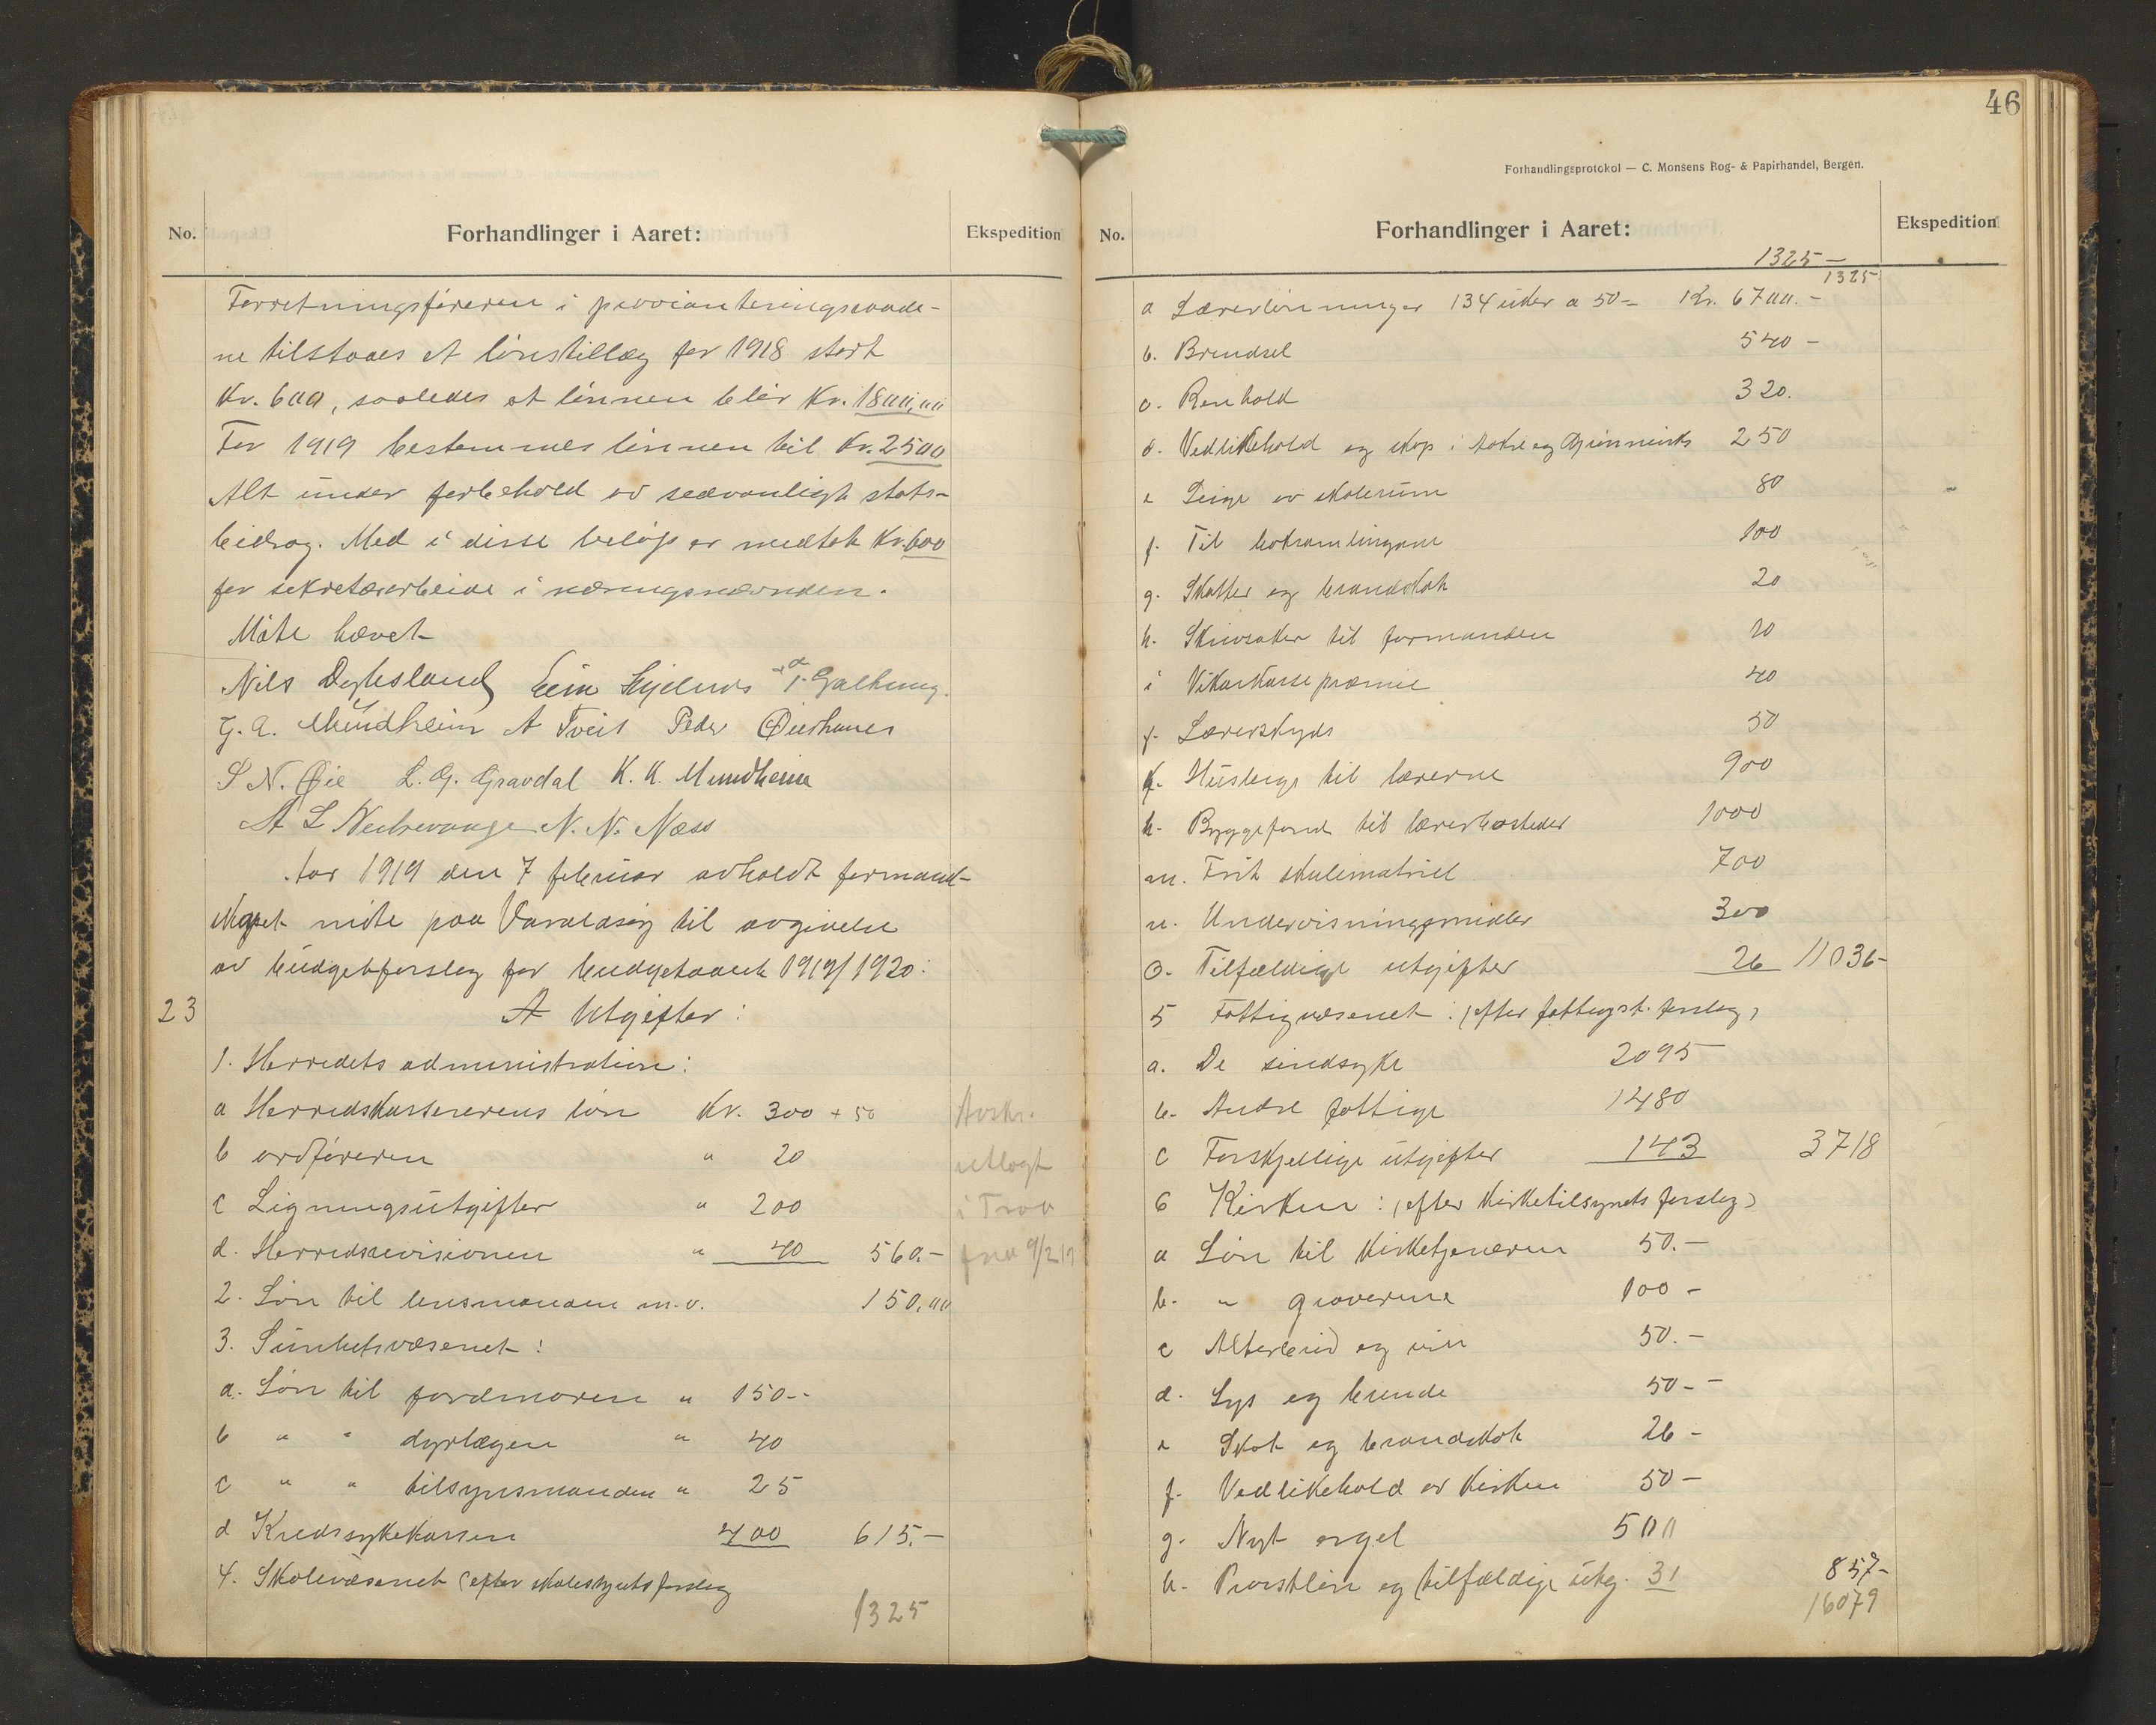 No.
Forhandlinger i Aaret:
Ekspedition
Forretningsföreren i provianteringsraade-
ne tilstaaes et lönstillæg for 1918 stort
Kr. 600, saaledes at lönnen blir Kr. 1800,00
For 1919 bestemmes lönnen til Kr. 2500
Alt under forbehold av sedvanligt stats-
bidrag. Med i disse belöp er medtat Kr. 600
for sekretærarbeide i næringsnævnden.
Möte hævet
Nils Dyrhsland T. Galtung
G. A. Mundheim A Tveit Peder Öierhavn
S N. Øie L. G. Gravdal K. K. Mundheim
A L N. N. Næss
Aar 1919 den 7 februar avholdt formand-
skapet möte paa Varaldsöy til avgivelse
av budgetforslag for budgetaaret 1919/1920:
23 A Utgifter:
1. Herredets administration:
a Herredskassererens lön Kr. 300 + 50
b ordföreren " 20
c Ligningsutgifter " 200
d. Herredsrevisionen " 40 560.-
Avskr.
utlagt
i
fra 9/2 19
2. Lön til lensmanden m.v. 150,00
3. Sunhetsvæsenet:
a. Lön til jordmoren " 150--
b " " dyrlægen " 40
c " " tilsynsmanden " 25
d Kredssykekassen 400 615.-
4. Skolevæsenet (efter skolestyrets forslag
1325
46
Forhandlingsprotokol — C. Monsens Bog- & Papirhandel, Bergen.
No.
Forhandlinger i Aaret:
Ekspedition
1325-
1325
a Lærerlönninger 134 uker a 50- Kr. 6700.-
b. Brendsel 540 -
c. Renhold 320.
d. Vedlikehold og skap i og 250
e Leige av skolerum 80
f. Til boksamlingane 100
g. Skatter og brandskat 20
h. Skrivsaker til formanden 10
i Vikarkasse præmie 40
j. Lærerskyds 50
k. Husleige til lærerne 900
l. Byggefond til lærerbosteder 1000
m. Frit skulematriel 700
n. Undervisningsmidler 300
o. Tilfældige utgifter 26 11036-
5 Fattigvæsenet: (efter fattigst. forslag)
a. De sindsyke 2095
b. Andre fattige 1480
c Forskjellige utgifter 143 3718
6 Kirken: (efter kirketilsynets forslag)
a Lön til kirketjeneren 50.-
b. " graverne 100 -
c Alterbröd og vin 50.-
d. Lys og brende 50--
e Skat og brandskat 26 -
f. Vedlikehold av kirken 50 -
g. Nyt orgel 500
h. Provstlön og tilfældige utg. 31 857-
16079